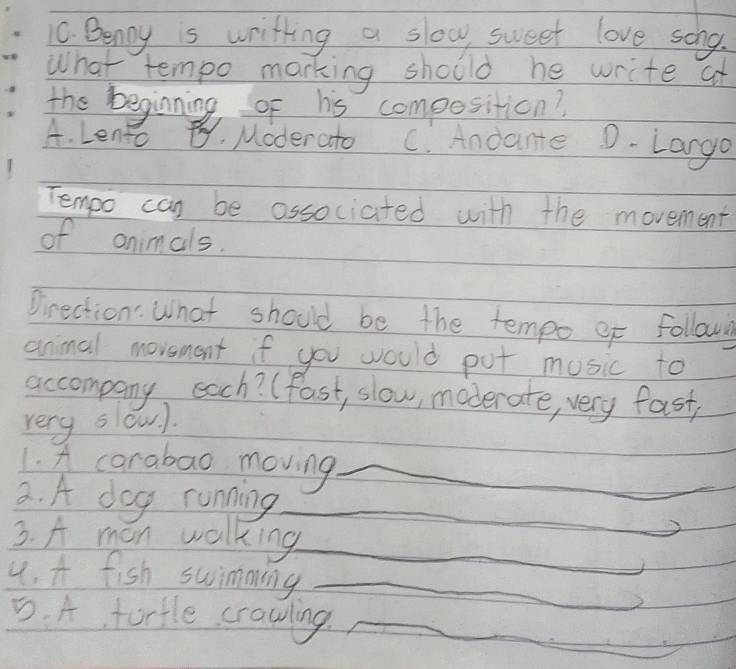 10. Benny is writting a slow, sweet love song.
What tempo marking should he write at
the beginning of his composition?
A. Lento B. Moderato C. Andante D. Largo
Tempo can be associated with the movement
of animals.
Direction: What should be the tempo of followin
animal movement if you would put music to
accompany each? (fast, slow, moderate, very fast,
very slow.).
1. A carabao moving
2. A dog running
3. A man walking
4. A fish swimming
5. A turtle crawling